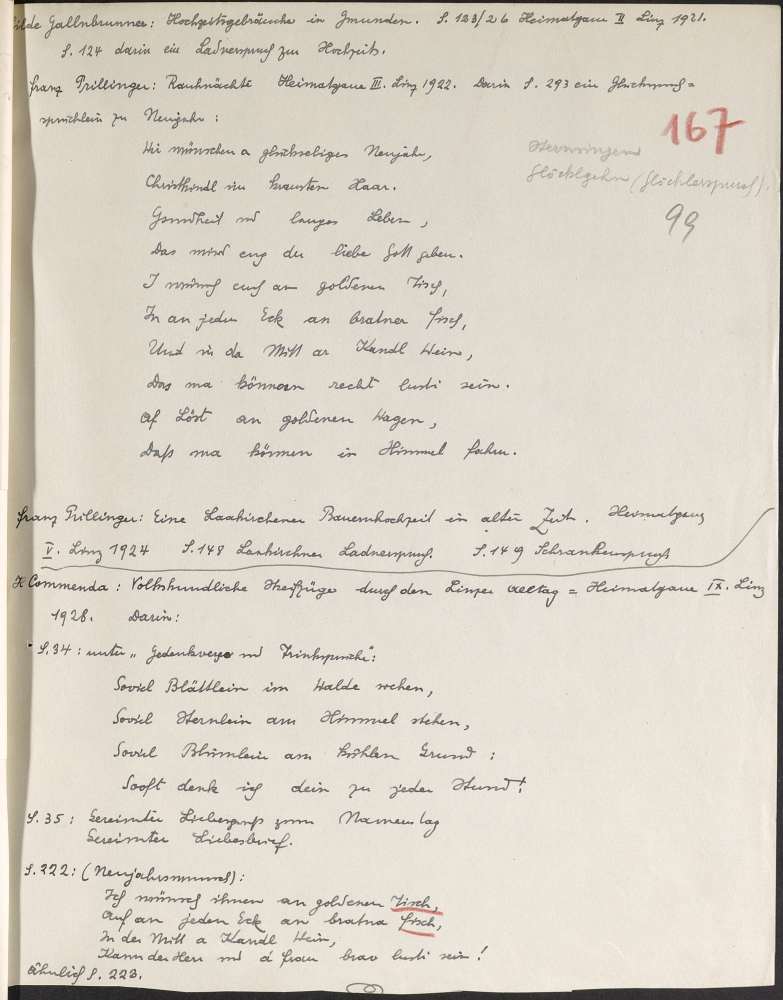 Hilde Gallnbrunner: Hochzeitsgebräuche in Gmunden. S. 123/26 Heimatgaue II Linz 1921.
S. 124 darin ein Ladnerspruch zur Hochzeit.
Franz Prillinger: Rauhnächte Heimatgaue III. Linz 1922. Darin S. 293 ein Glückwunsch=
sprüchlein zu Neujahr:
167
Wir wünschen a glückseliges Neujahr,
Sternsingen
Christkindl im krausten Haar.
Glöcklgehn (Glöcklerspruch).
Gsundheit und langes Leben,
99
Das wird eng der liebe Gott geben.
I wünsch euch an goldenen Tisch,
In an jeden Eck an bratner Fisch,
Und in da Mitt ar Kandl Wein,
Das ma können recht lusti sein.
Af Löst an goldenen Wagen,
Daß ma können in Himmel fahrn.
Franz Prillinger: Eine Laakirchener Bauernhochzeit in alter Zeit. Heimatgaue
V. Linz 1924 S. 148 Laakirchner Ladnerspruch. S. 149 Schrankenspruch
H Commenda: Volkskundliche Streifzüge durch den Linzer Alltag = Heimatgaue IX. Linz
1928. Darin:
S. 34: unter "Gedenkverse und Trinksprüche":
Soviel Blättlein im Walde wehen,
Soviel Sternlein am Himmel stehen,
Soviel Blümlein am kühlen Grund:
Sooft denk ich dein zu jeder Stund!
S. 35: Gereimter Liebesgruß zum Namenstag
Gereimter Liebesbrief.
S. 222: (Neujahrswunsch):
Ich wünsch ihnen an goldenen Tisch,
Auf an jeden Eck an bratna Fisch,
In der Mitt a Kandl Wein,
Kann der Herr und d Frau brav lusti sein!
Ähnlich S. 223.